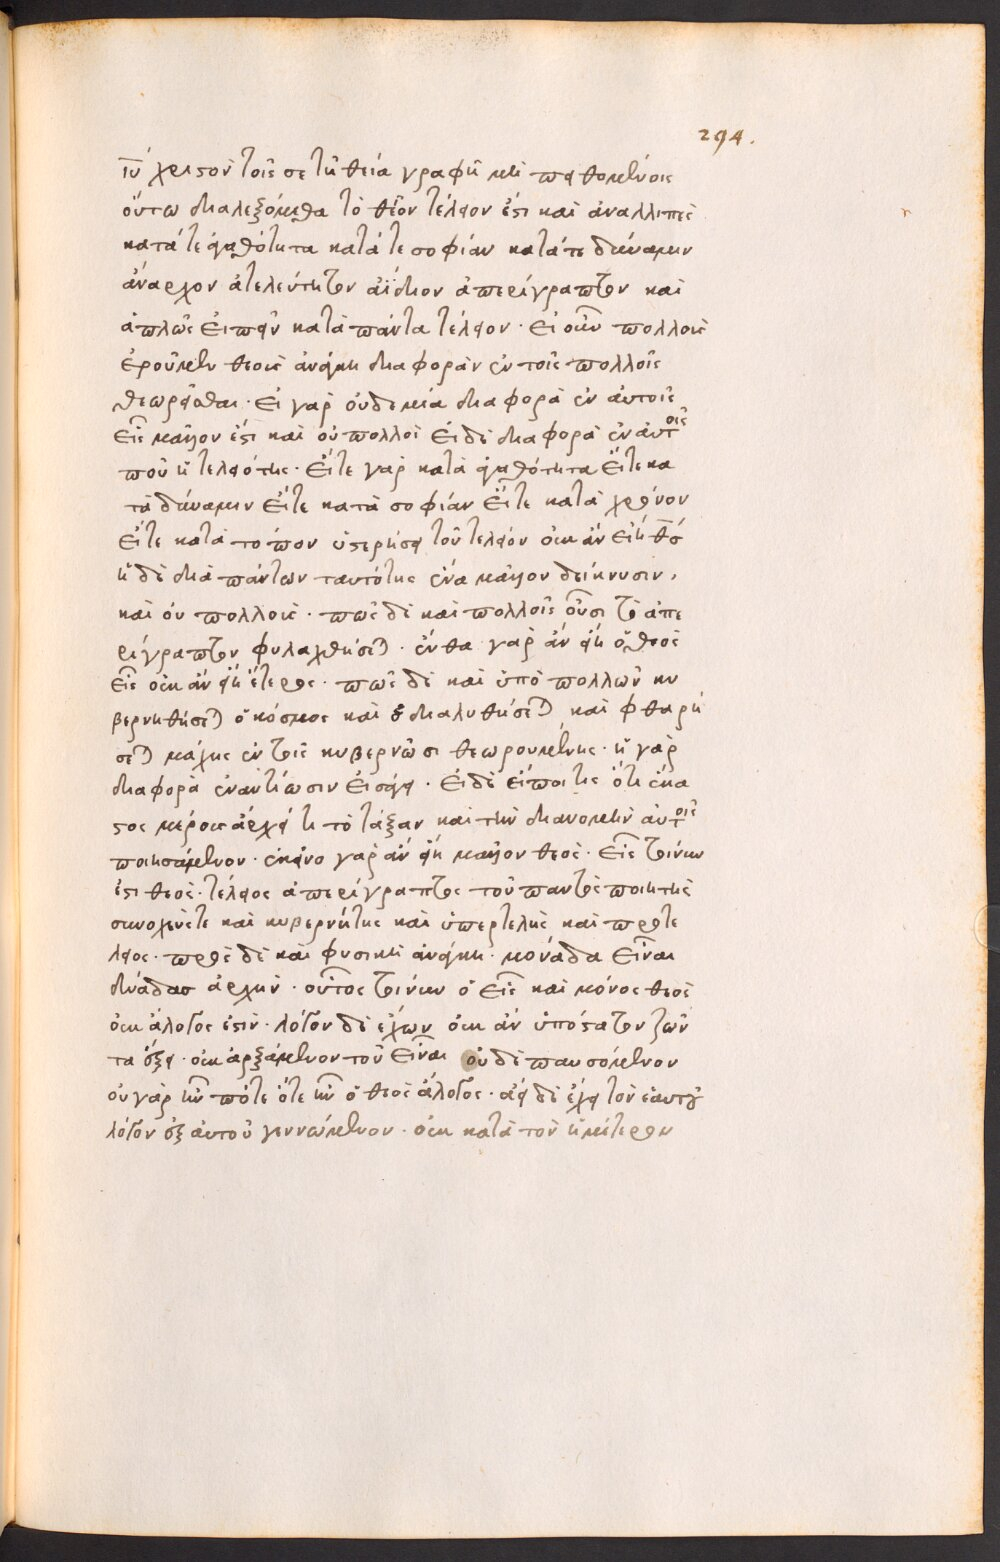 294.
ἰῦ χριστὸν τοῖς σε τῆ θεία γραφῆ μὴ πειθομένοις
οὕτω διαλεξόμεθα τὸ θεῖον τέλειον ἐστι καὶ ἀναλλιπὲς
κατά τε ἀγαθότητα κατά τε σοφίαν κατά τε δύναμιν
ἄναρχον ἀτελεύτητον αΐδιον ἀπερίγραπτον καὶ
ἁπλῶς εἰπεῖν κατὰ πάντα τέλειον · εἰ οὖν πολλοὺς
ἐροῦμεν θεοὺς ἀνάγκη διαφορὰν ἐν τοῖς πολλοῖς
θεωρεῖσθαι · εἰ γὰρ οὐδεμία διαφορὰ ἐν αὐτοῖς
εἷς μᾶλλον ἐστὶ καὶ οὐ πολλοὶ εἰ δὲ διαφορὰ ἐν αὐτοῖς
ποῦ ἡ τελειότης · εἴτε γὰρ κατὰ ἀγαθότητα εἴτε κα
τὰ δύναμιν εἴτε κατὰ σοφίαν εἴτε κατὰ χρόνον
εἴτε κατὰ τόπον ὑστερήσει τοῦ τελείου οὐκ ἂν εἴη θσ
ἡ δὲ διὰ πάντων ταυτότης ἕνα μᾶλλον δείκνυσιν,
καὶ οὐ πολλοὺς · πῶς δὲ καὶ πολλοῖς οὖσι τὸ ἀπε
ρίγραπτον φυλαχθήσεται · ἔνθα γὰρ ἂν εἴη ὁ θεὸς
εἷς οὐκ ἂν εἴη ἕτερος · πῶς δὲ καὶ ὑπὸ πολλῶν κυ
βερνηθήσεται ὁ κόσμος καὶ οὐ διαλυθήσεται καὶ φθαρή
σεται μάχης ἐν τοῖς κυβερνῶσι θεωρουμένης · ἡ γὰρ
διαφορὰ ἐναντίωσιν εἰσάγει · εἰ δὲ εἴποι τὶς ὅτι ἕκα
στος μέρους ἄρχει τὶ τὸ τάξαν καὶ τὴν διανομὴν αὐτοῖς
ποιησάμενον · ἐκεῖνο γὰρ ἂν εἴη μᾶλλον θεὸς · εἷς τοίνυν
ἐστι θεὸς · τέλειος ἀπερίγραπτος τοῦ παντὸς ποιητὴς
συνοχεύς τε καὶ κυβερνήτης καὶ ὑπερτελὴς καὶ προτέ
λειος · πρὸς δὲ καὶ φυσικὴ ἀνάγκη · μονάδα εἶναι
δυάδας ἀρχὴν · οὗτος τοίνυν ὁ εἷς καὶ μόνος θεὸς
οὐκ ἄλογος ἐστὶν · λόγον δὲ ἔχων οὐκ ἀνυπόστατον ζῶν
τα ἕξει · οὐκ ἀρξάμενον τοῦ εἶναι οὐδὲ παυσόμενον
οὐ γὰρ ἦν πότε ὅτε ἦν ὁ θεὸς ἄλογος · ἀεὶ δὲ ἔχει τὸν ἑαυτοῦ
λόγον ἐξ αὐτοῦ γεννώμενον · οὐ κατὰ τὸν ἡμέτερον